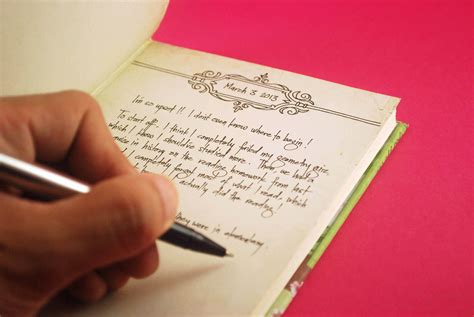 March 3, 2013
I'm so upset!! I don't even know where to begin!
To start off, I think I completely failed my geometry quiz,
which I know I should've studied more. Then, we had a
in history on the reading homework from last
completely forgot most of what I read, which
actually did the reading!
they were in elementary